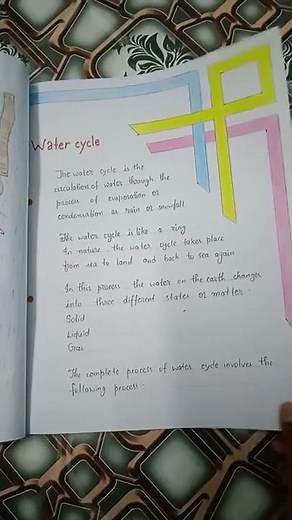 Water cycle
The water cycle is the
circulation of water through the
process of evaporation or
condensation as rain or snowfall
The water cycle is like a ring
In nature the water cycle takes place
from sea to land and back to sea again
In this process the water on the earth changes
into three different states or matter :-
Solid
Liquid
Gas
The complete process of water cycle involves the
following process :-